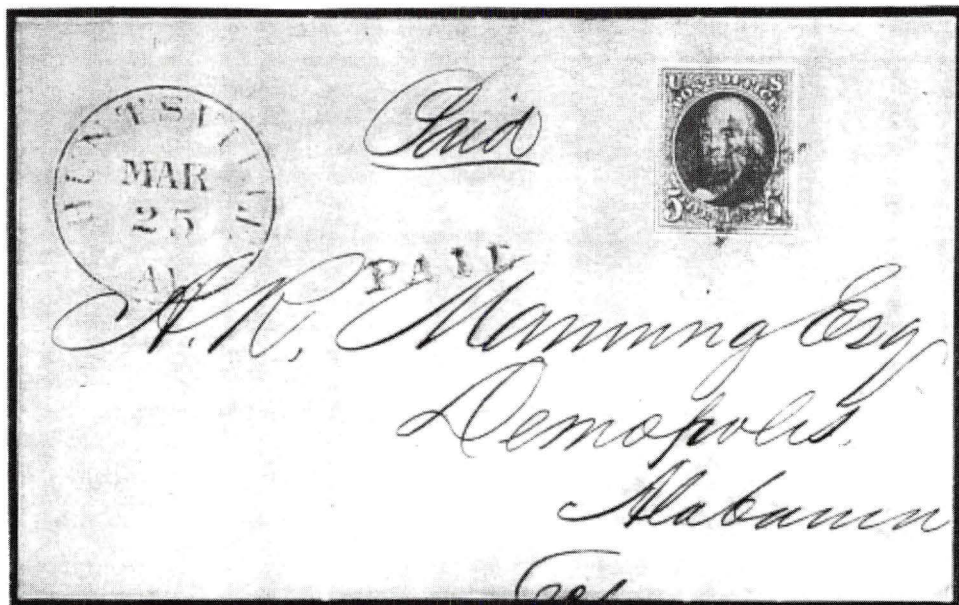 HUNTSVILLE
MAR
25
Al
Paid
PAID
U S
POST OFFICE
5 5
A. R. Manning Esq
Demopolis.
Alabama